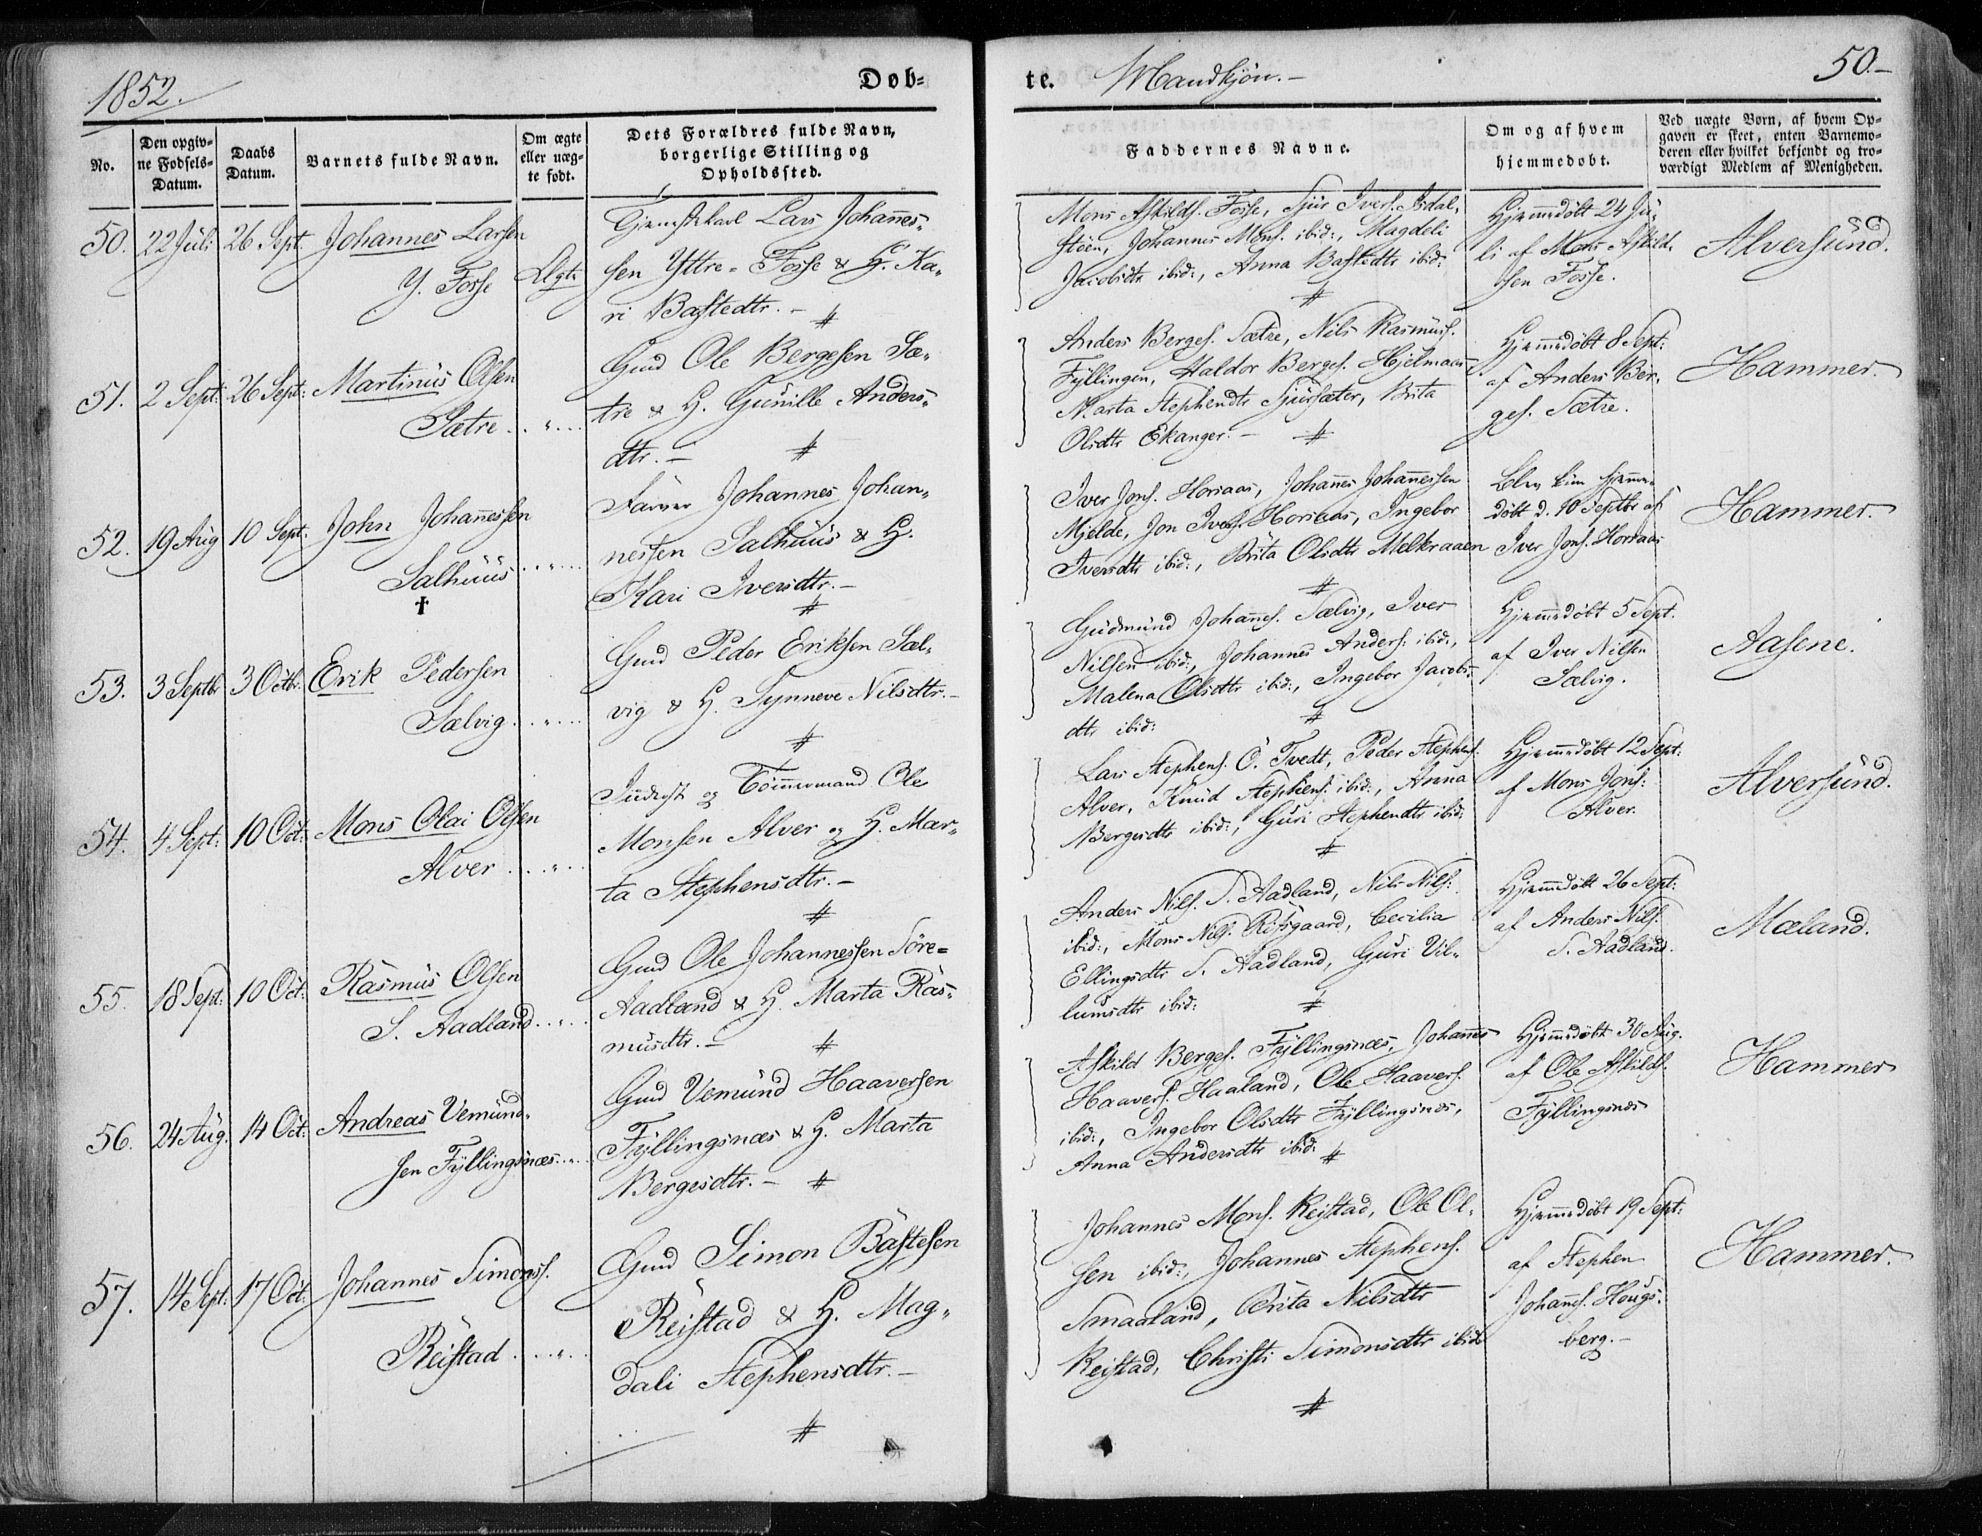 1852.
Døb-
te.
Mandkjön.-
50.-
No.
Den opgiv-
ne Fødsels-
Datum.
Daabs
Datum.
Barnets fulde Navn.
Om ægte
eller uæg-
te født.
Dets Forældres fulde Navn,
borgerlige Stilling og
Opholdssted.
Faddernes Navne.
Om og af hvem
hjemmedøbt.
Ved uægte Børn, af hvem Op-
gaven er skeet, enten Barnemo-
deren eller hvilket bekjendt og tro-
værdigt Medlem af Menigheden.
50. 22 Juli 26 Sept. Johannes Larsen
Y. Fosse Ægte
Tjenestekarl Lars Johannes-
sen Yttre-Fosse & H. Ka-
ri Bastedtr.-
Mons Askilds. Fosse, Sjur Ivers. Isdal-
støen, Johannes Mons. ibid:, Magdeli
Jacobsdtr ibid:, Anna Bastedtr ibid:
Hjemmedøbt 24 Ju-
li af Mons Askild-
sen Fosse.
Alversund.
51. 2 Sept: 26 Sept: Martinus Olsen
Sætre
Gmd Ole Bergesen Sæ-
tre & H. Gunille Anders-
dtr.-
Anders Berges. Sætre, Nils Rasmuss.
Fyllingen, Haldor Berges. Hjelmaas
Marta Stephensdtr Sjursæter, Brita
Olsdtr Ekanger.-
Hjemmedøbt 8 Sept:
af Anders Ber-
ges. Sætre.
Hammer.
52. 19 Aug 10 Sept: John Johannessen
Salhuus
†
Farver Johannes Johan-
nessen Salhuus & H.
Kari Iversdtr.-
Iver Jons. Horsaas, Johannes Johannessen
Mjelde, Jon Ivers. Horsaas, Ingebor
Iversdtr ibid:, Brita Olsdtr Melkraaen
Blev kun hjemme-
døbt d. 10 Septbr af
Iver Jons. Horsaas
Hammer.
53. 3 Septbr 3 Octbr. Erik Pedersen
Sælvig
Gmd Peder Eriksen Sæl-
vig & H. Synneve Nilsdtr.-
Gudmund Johanes. Sælvig, Iver
Nilsen ibid:, Johannes Anders. ibid:,
Malena Olsdtr ibid:, Ingebor Jacobs-
dtr ibid:
Hjemmedøbt 5 Sept.
af Iver Nilsen
Sælvig.
Aasene.
54. 4 Sept: 10 Oct: Mons Olai Olsen
Alver
Inderst og Tömmermand Ole
Monsen Alver og H. Mar-
ta Stephensdtr.-
Lars Stephens. Ö. Tvedt, Peder Stephens.
Alver, Knud Stephens. ibid:, Anna
Bergesdtr ibid:, Guri Stephensdtr ibid:
Hjemmedøbt 12 Sept:
af Mons Jons:
Alver.
Alversund.
55. 18 Sept. 10 Oct: Rasmus Olsen
S. Aadland
Gmd Ole Johannessen Söre-
Aadland & H. Marta Ras-
musdtr.-
Anders Nils. S. Aadland, Nils Nils:
ibid:, Mons Nils. Risgaard, Cecilia
Ellingsdtr S. Aadland, Guri Vil-
lumsdtr ibid:
Hjemmedøbt 26 Sept:
af Anders Nils.
S. Aadland.
Mæland.
56. 24 Aug. 14 Oct: Andreas Vemund-
sen Fyllingsnæs
Gmd Vemund Haaversen
Fyllingsnæs & H. Marta
Bergesdtr.-
Askild Berges. Fyllingsnæs, Johannes
Haavers. Haaland, Ole Haavers.
ibid:, Ingebor Olsdtr Fyllingsnæs,
Anna Andersdtr ibid:
Hjemmedøbt 30 Aug.
af Ole Askilds.
Fyllingsnæs
Hammer
57. 14 Sept: 17 Oct: Johannes Simons.
Reistad
Gmd Simon Bastesen
Reistad & H. Mag-
dali Stephensdtr.-
Johannes Mons. Reistad, Ole Ol-
sen ibid:, Johannes Stephens.
Smaaland, Brita Nilsdtr
Reistad, Christi Simonsdtr ibid
Hjemmedøbt 19 Sept:
af Stephen
Johans. Hougs-
berg.-
Hammer.